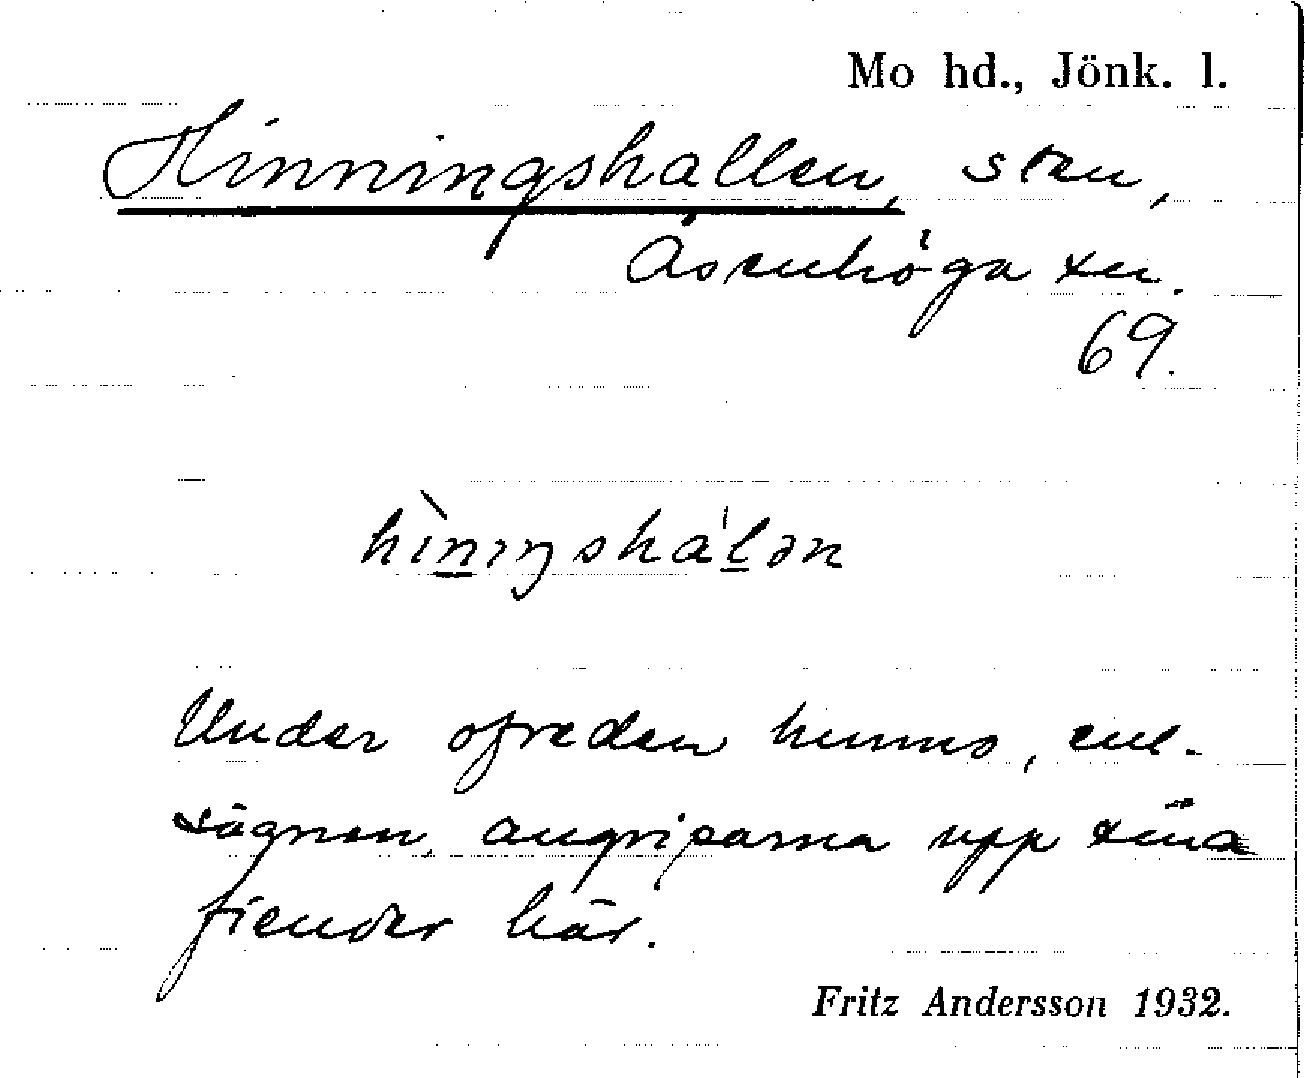 Mo hd., Jönk. l.
Hinningshallen, sten,
Åsenhöga sn.
69.
hìnıŋshálən
Under ofreden hunno, enl.
sägnen, angriparna upp sina
fiender här.
Fritz Andersson 1932.